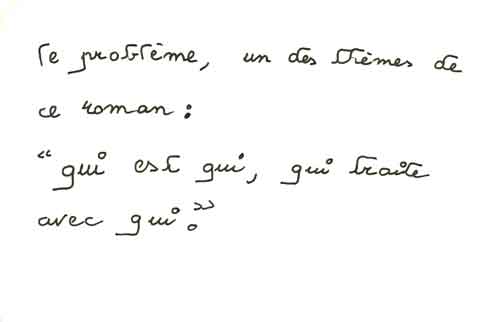 le problème, un des thèmes de
ce roman :
“qui est qui, qui traite
avec qui.”